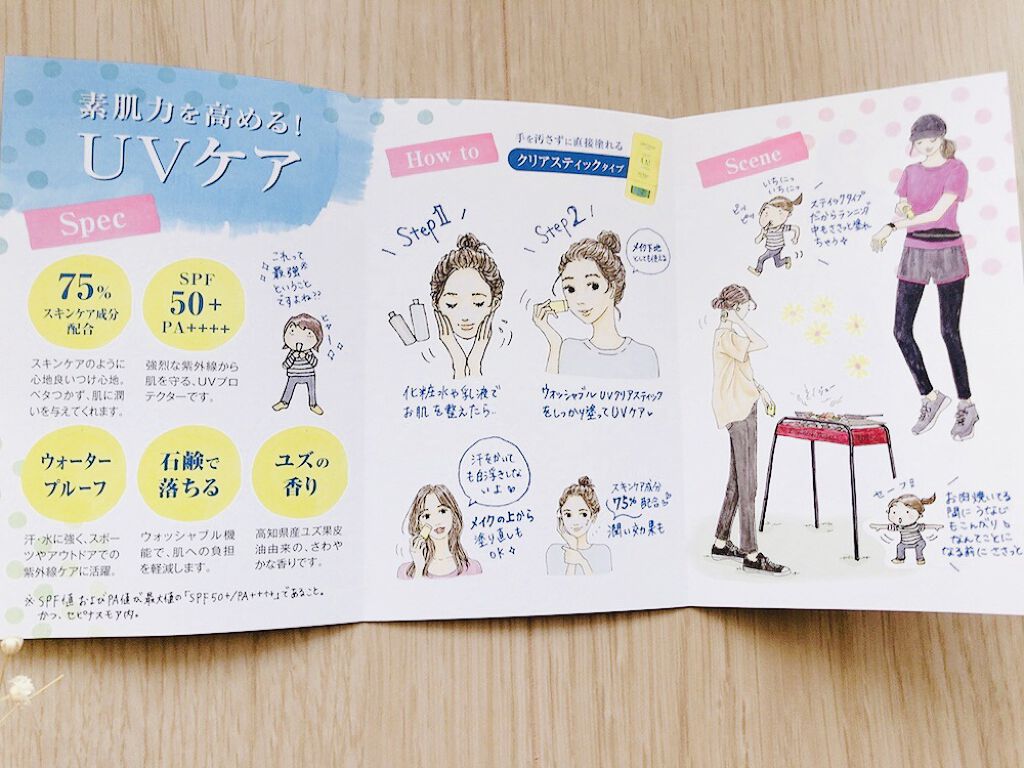 素肌力を高める!
UVケア
Spec
75%
スキンケア成分
配合
スキンケアのように
心地良いつけ心地。
ベタつかず、肌に潤
いを与えてくれます。
SPF
50+
PA++++
強烈な紫外線から
肌を守る、UVプロ
テクターです。
これって
最強※
ということ
ですよね??
ウォーター
プルーフ
汗・水に強く、スポー
ツやアウトドアでの
紫外線ケアに活躍。
石鹸で
落ちる
ウォッシャブル機
能で、肌への負担
を軽減します。
ユズの
香り
高知県産ユズ果皮
油由来の、さわや
かな香りです。
※SPF値およびPA値が最大値の「SPF50+/PA++++」であること。
かつ、セピナスモア内。
How to
手を汚さずに直接塗れる
クリアスティックタイプ
Step1
化粧水や乳液で
お肌を整えたら…
Step2
メイク下地
としても使える
ウォッシャブルUVクリアスティック
をしっかり塗ってUVケア
汗をかいて
も白浮きしな
いよ
メイクの上から
塗り直しも
OK
スキンケア成分
75%配合
潤い効果も
Scene
いちにっ
いちにっ
スティックタイプ
だからランニング
中もささっと塗れ
ちゃう
セーフ!!
お肉焼いてる
間にうなじ
もこんがり
なんてことに
なる前にささっと